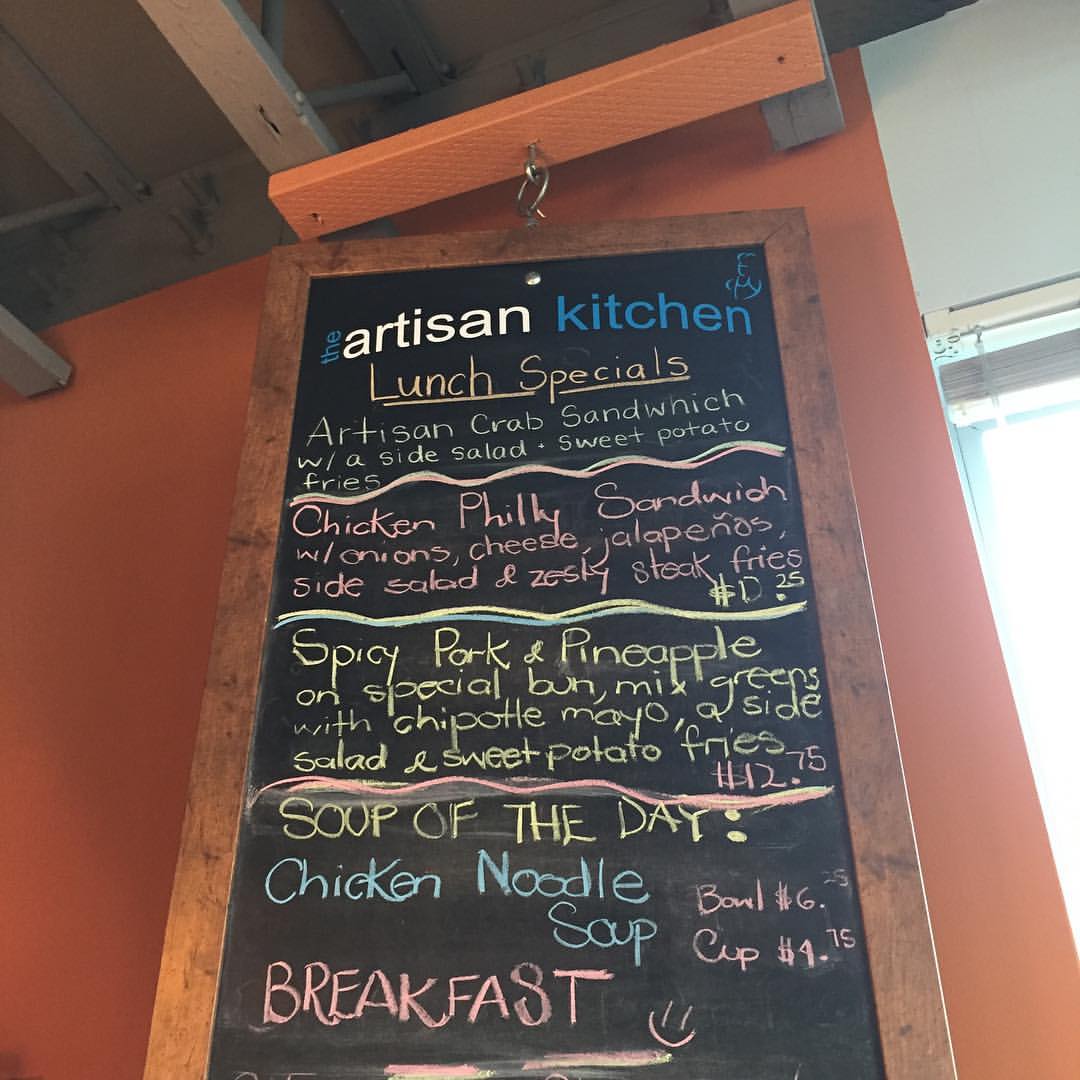 the artisan kitchen
Lunch Specials
Artisan Crab Sandwhich
w/ a side salad + sweet potato
fries
Chicken Philly Sandwich
w/ onions, cheese, jalapeños,
side salad & zesty steak fries
.25
Spicy Pork & Pineapple
on special bun, mix greens
with chipotle mayo, a side
salad & sweet potato fries
$12.75
SOUP OF THE DAY:
Chicken Noodle
Soup
Bowl $6.25
Cup $4.75
BREAKFAST